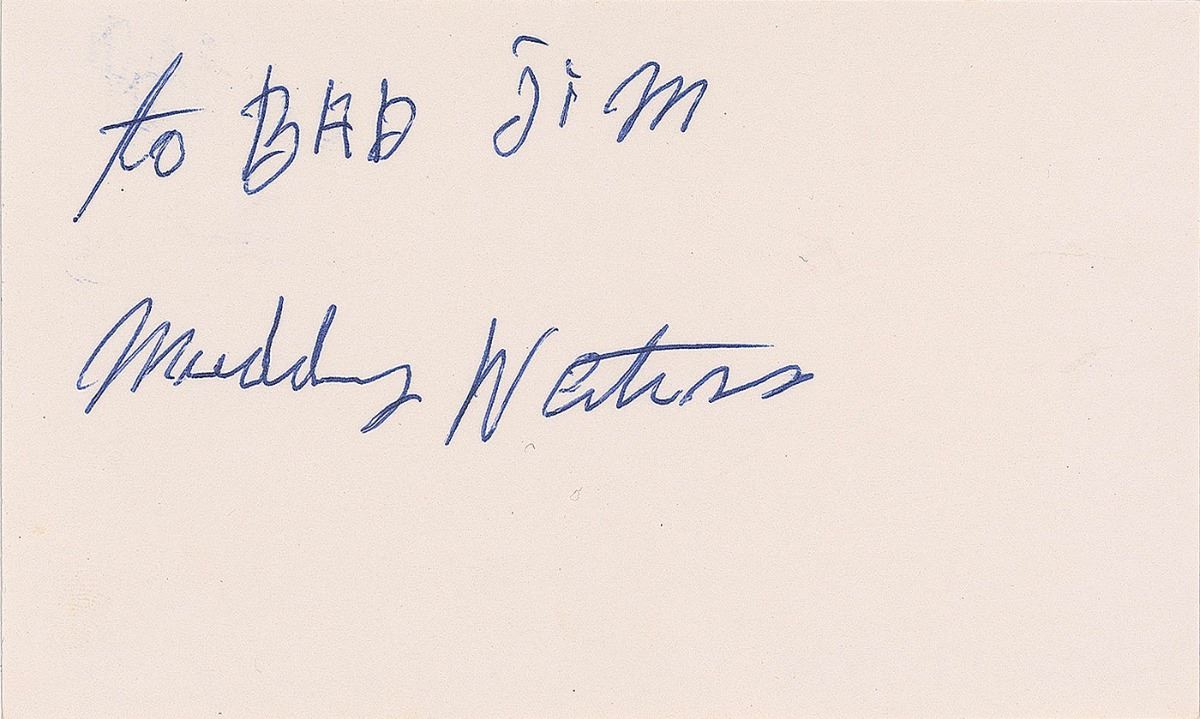 to BAD Jim
Muddy Waters